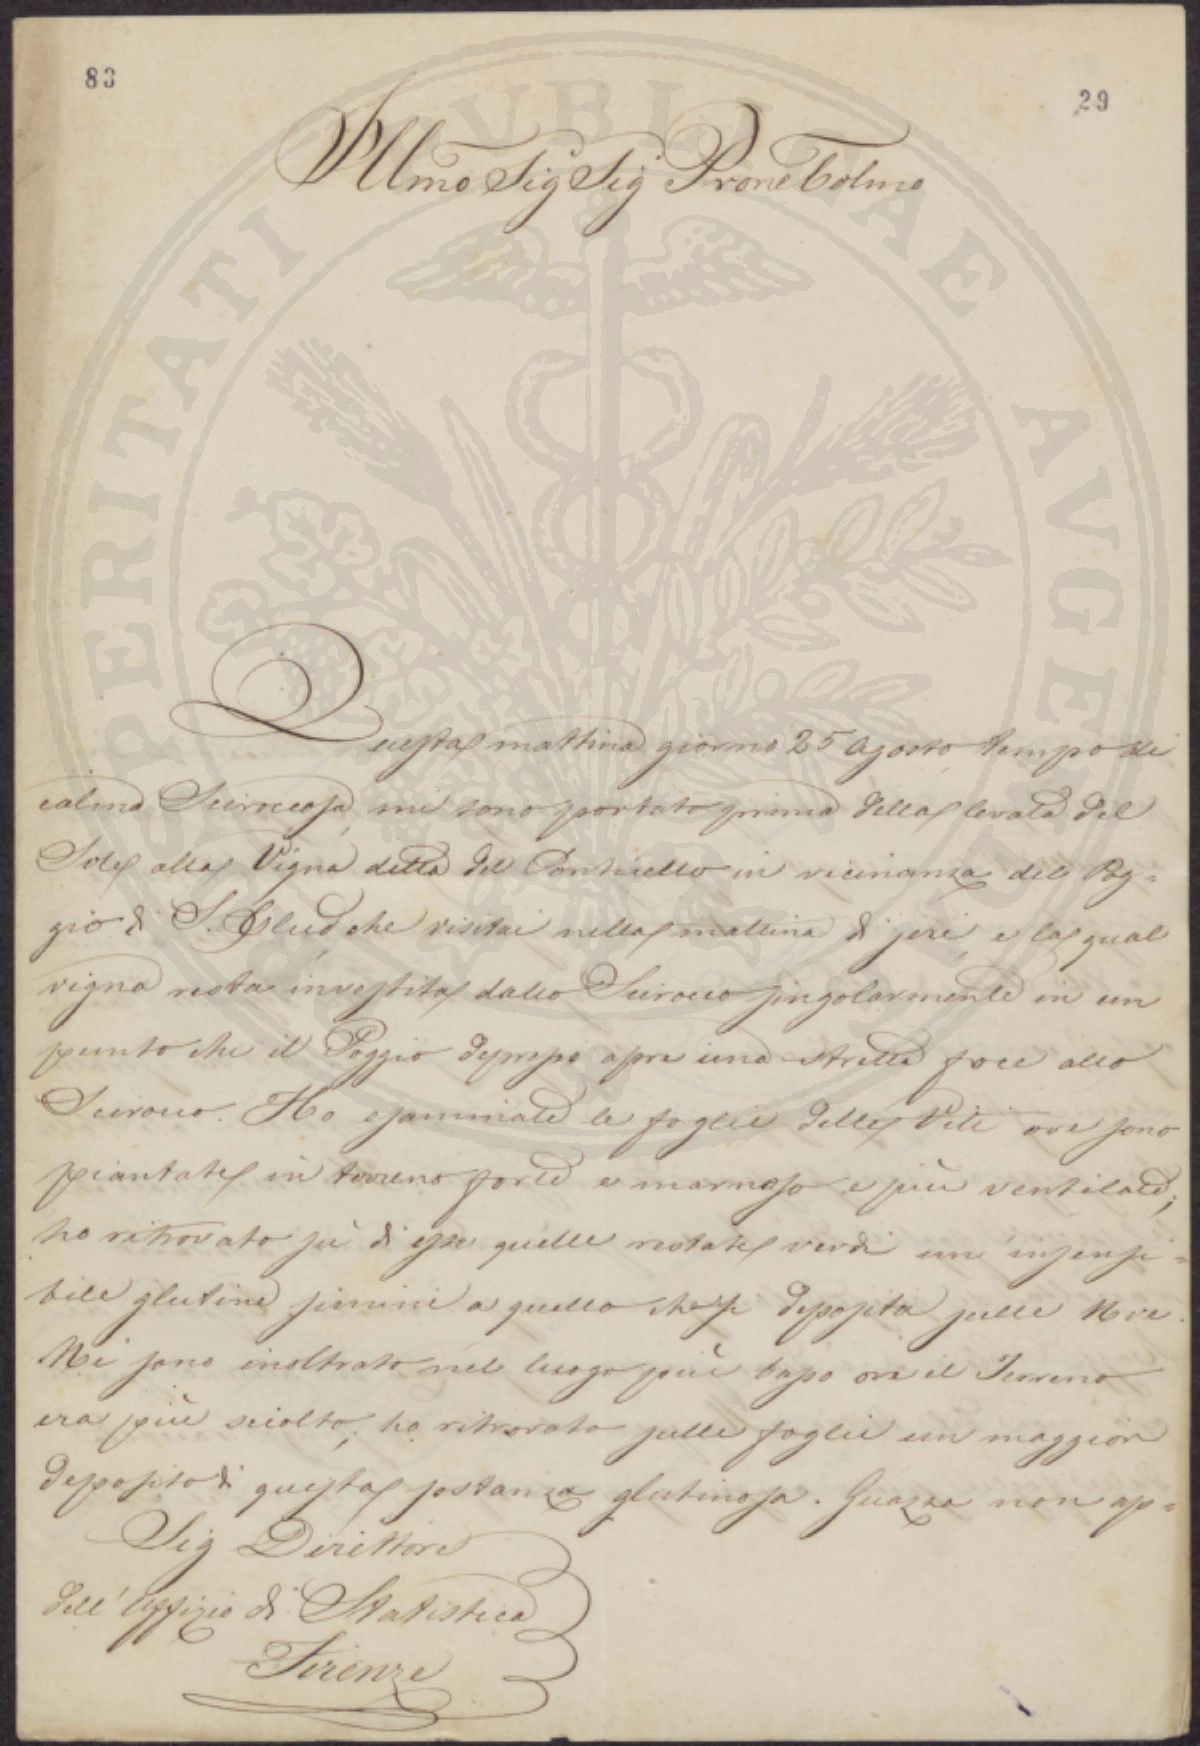 83
29
Illmo Sig Sig Prone Colmo
Questa mattina giorno 25 Agosto tempo di
calma Sciroccosa, mi sono portato prima della levata del
Sole alla Vigna detta del Ponticello in vicinanza del Pog=
gio di S. che visitai nella mattina di jeri, e la qual
vigna resta investita dallo Scirocco singolarmente in un
punto che il Poggio depresso apre una stretta foce allo
Scirocco. Ho esaminate le foglie delle Viti ove sono
piantate in terreno forte e marnoso e più ventilate;
ho ritrovato su di esse quelle restate verdi un insensi=
bile glutine simile a quello che si deposita sulle Uve.
Mi sono inoltrato nel luogo più basso ove il Terreno
era più sciolto, ho ritrovato sulle foglie un maggior
deposito di questa sostanza glutinosa. Guazza non ap=
Sig Direttore
dell'Uffizio di Statistica
Firenze
PROSPERITATI PUBLICAE AUGENDAE